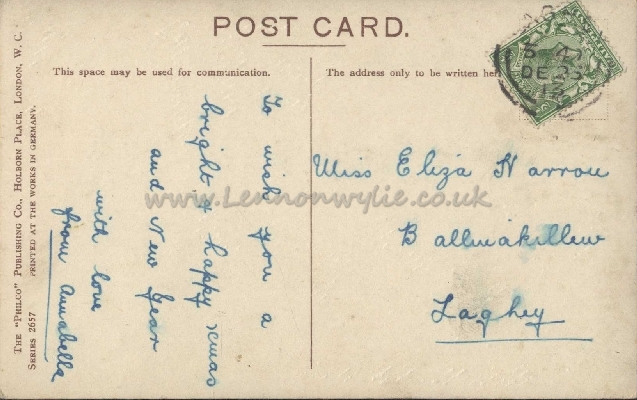 POST CARD.
This space may be used for communication.
The address only to be written here
To wish you a
bright & happy xmas
and New Year
with love
from Annabella
Miss Eliza Narrow
Ballinakillew
Laghey
5-
DE 23
13
www.Lennonwylie.co.uk
THE "PHILCO" PUBLISHING CO., HOLBORN PLACE, LONDON, W. C.
SERIES 2657 PRINTED AT THE WORKS IN GERMANY.